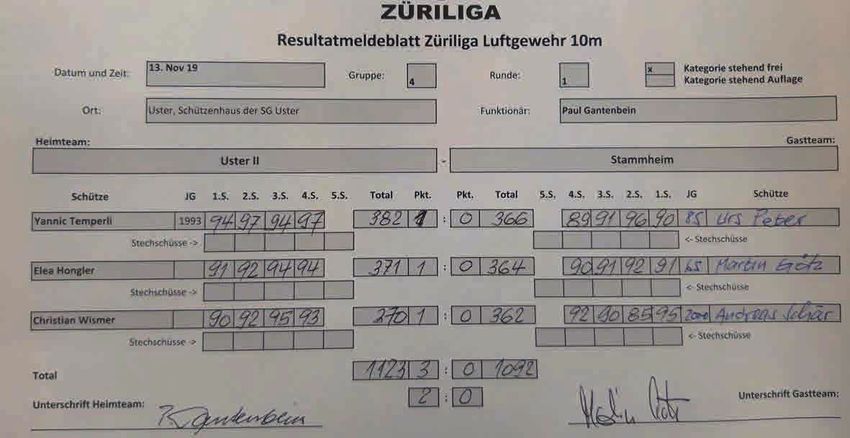 ZÜRILIGA
Resultatmeldeblatt Züriliga Luftgewehr 10m
Datum und Zeit: 13. Nov 19 Gruppe: 4 Runde: 1 x Kategorie stehend frei
Kategorie stehend Auflage
Ort: Uster, Schützenhaus der SG Uster Funktionär: Paul Gantenbein
Heimteam: Gastteam:
Uster II - Stammheim
Schütze JG 1.S. 2.S. 3.S. 4.S. 5.S. Total Pkt. Pkt. Total 5.S. 4.S. 3.S. 2.S. 1.S. JG Schütze
Yannic Temperli 1993 94 97 94 97 382 1 : 0 366 89 91 96 90 85 Urs Peter
Stechschüsse -> <- Stechschüsse
Elea Hongler 91 92 94 94 371 1 : 0 364 90 91 92 91 65 Martin Götz
Stechschüsse -> <- Stechschüsse
Christian Wismer 90 92 95 93 370 1 : 0 362 92 90 85 95 2000 Andreas Schär
Stechschüsse -> <- Stechschüsse
Total 1123 3 : 0 1092
2 : 0
Unterschrift Heimteam: Gantenbein Unterschrift Gastteam: